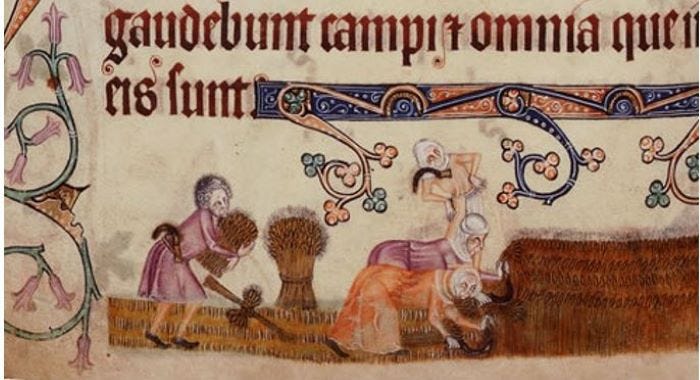 gaudebunt campi ⁊ omnia que
eis sunt.